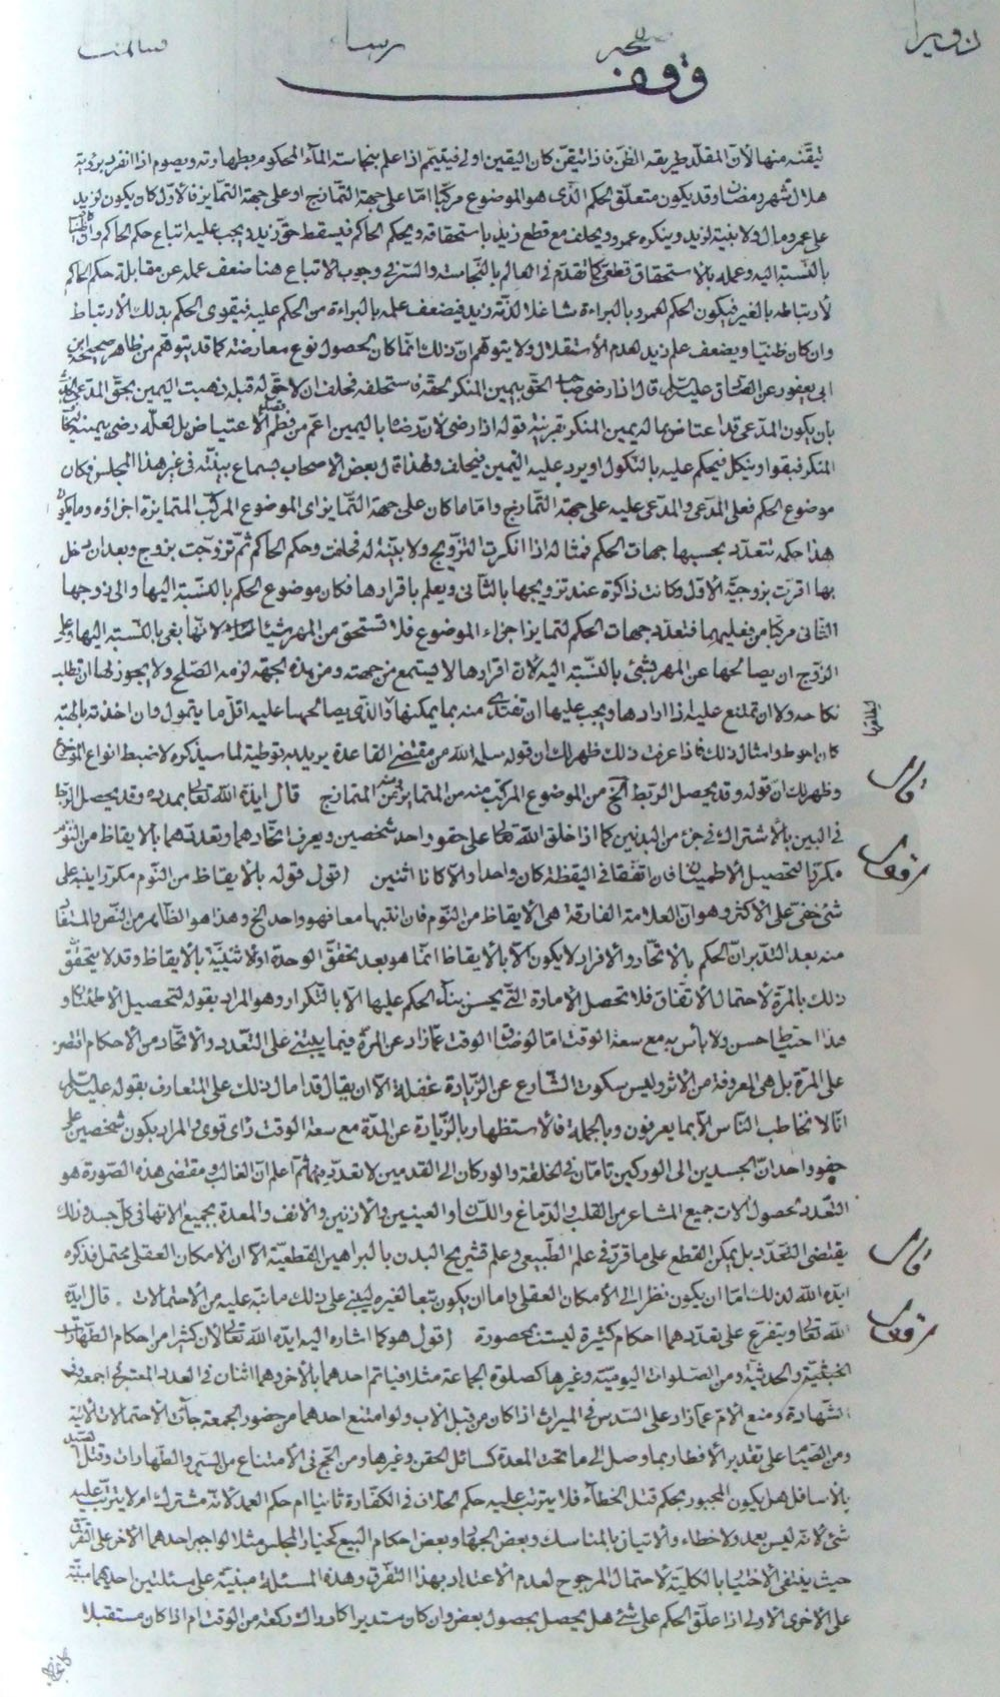 وقف
تيقّنه منها لأنّ المقلّد طريقه الظنّ فاذا تيقّن كان اليقين اولى فيتيمّم اذا علم بنجاسة المآء المحكوم بطهارته ويصوم اذا انفرد برؤية
هلال شهر رمضان وقد يكون متعلّق الحكم الّذى هو الموضوع مركّبا امّا على جهة التّمازج او على جهة التّمايز فالأوّل كان يكون لزيد
على عمرو مال ولا بيّنة لزيد وينكره عمرو ويحلف مع قطع زيد باستحقاقه ويحكم الحاكم فيسقط حقّ زيد ويجب عليه اتباع حكم الحاكم
بالنّسبة اليه وعمله بالاستحقاق قطعىّ كما تقدّم فى العالم بالنّجاسة والسّرّ فى وجوب الاتباع هنا ضعف عمله عن مقابلة حكم الحاكم
لارتباطه بالغير فيكون الحكم لعمرو بالبراءة شاغلا لذمّة زيد فيضعف علمه بالبراءة من الحكم عليه فيقوى الحكم بذلك الارتباط
وان كان ظنّيا ويضعف علم زيد لعدم الاستقلال ولا يتوهّم انّ ذلك انّما كان لحصول نوع معارضة كما قد يتوهّم من ظاهر صحيحة ابن
ابى يعفور عن الصّادق عليه السّلم قال اذا رضى صاحب الحقّ بيمين المنكر لحقّه فاستحلفه فحلف ان لا حقّ له قبله ذهبت اليمين بحقّ المدّعى
بان يكون المدّعى قد اعتاض بماله يمين المنكر بقرينة قوله اذا رضى لأن رضاه باليمين اعمّ من الاعتياض بل لعلّه رضى بيمينه
المنكر فيقرّ او ينكل فيحكم عليه بالنّكول او يردّ عليه اليمين فيحلف ولهذا قال بعض الأصحاب بسماع بيّنته فى غير هذا المجلس فكان
موضوع الحكم فعلى المدّعى والمدّعى عليه على جهة التّمازج وامّا ما كان على جهة التّمايز اى الموضوع المركّب المتمايزة اجزاؤه وما يكون
هذا حكمه تتعدّد بحسبها جهات الحكم فمثاله اذا انكرت التّزويج ولا بيّنة له فحلفت وحكم الحاكم ثمّ تزوّجت بزوج وبعد ان دخل
بها اقرّت بزوجيّة الأوّل وكانت ذاكرة عند تزويجها بالثّانى ويعلم باقرارها فكان موضوع الحكم بالنّسبة اليها والى زوجها
الثّانى مركّبا من فعليهما فتعدّد جهات الحكم لتمايز اجزاء الموضوع فلا تستحقّ من المهر شيئا لانّها بغى بالنّسبة اليها وعلى
الزّوج ان يصالحها عن المهر بشئ بالنّسبة اليه لأنّ اقرارها لا يستمع من جهته ومن هذه الجهة لزمه الصّلح ولا يجوز لها ان تطلبه
نكاحه ولا ان تمتنع عليه اذا ارادها ويجب عليها ان تفتدى منه بما يمكنها والذى يصالحها عليه اقلّ ما يتموّل وان اخذته بالهبة
كان احوط وامثال ذلك فاذا عرفت ذلك ظهر لك ان قوله سلمه الله من مقتضى القاعدة يريد به توطية لما سيذكره لا ضبط انواع الموضوع
وظهر لك انّ قوله وقد يحصل الرّبط الخ من الموضوع المركّب منه من المتمايز ومنه المتمازج قال ايّده الله تعالى بمدده وقد يحصل الرّبط
فى البين بالاشتراك فى جزء من البدنين كما اذا خلق الله تعالى على حقو واحد شخصين ويعرف اتّحادهما وتعدّدهما بالايقاظ من النّوم
مكرّرا لتحصيل الاطمينان فان اتّفقا فى اليقظة كان واحدا والّا كانا اثنين اقول قوله بالايقاظ من النّوم مكرّرا ينبه على
شئ خفىّ على الاكثر وهو انّ العلامة الفارقة هى الايقاظ من النّوم فان انتبها معا فهو واحد الخ وهذا هو الظّاهر من النّصّ والمستفاد
منه بعد التّدبر انّ الحكم بالاتّحاد والافراد لا يكون الّا بالايقاظ انّما هو بعد تحقّق الوحدة او الاثنينيّة بالايقاظ وقد لا يتحقّق
ذلك بالمرّة لاحتمال الاتّفاق فلا تحصل الامارة الّتى يحسن بناء الحكم عليها الّا بالتّكرار وهو المراد بقوله لتحصيل الاطمينان و
هذا احتياط حسن ولا بأس به مع سعة الوقت امّا لو ضاق الوقت عمّا زاد عن المرّة فيما يبتنى على التّعدد والاتّحاد من الأحكام اقتصر
على المرّة بل هى المعروفة من الأثر وليس سكوت الشّارع عن الزّيادة غفلة الّا ان يقال قد امال ذلك على المتعارف بقوله عليه السّلم
انّا لا نخاطب النّاس الّا بما يعرفون وبالجملة فالاستظهار بالزّيارة عن المدّة مع سعة الوقت رأى قوى والمراد بكون شخصين على
حقو واحد انّ الجسدين الى الوركين تامّان فى الخلقة والوركان الى القدمين لا تعدّد فيهما ثمّ اعلم انّ الغالب ومقتضى هذه الصّورة هو
التّعدد لحصول الات جميع المشاعر من القلب والدّماغ واللّسان والعينين والأذنين والأنف والمعدة بجميع الاتها فى كلّ جسد وذلك
يقتضى التّعدّد بل يمكن القطع على ما قرّر فى علم الطّبيعى وعلم تشريح البدن بالبراهين القطعيّة الّا ان الامكان العقلى محتمل فذكره
ايّده الله لذلك امّا ان يكون نظرا الى الأمكان العقلى وامّا ان يكون تبعا لغيره ليبنى على ذلك ما نبّه عليه من الاحتمالات . قال ايّده
الله تعالى ويتفرّع على تعدّدهما احكام كثيرة ليست بمحصورة اقول هو كما اشار اليه ايّده الله تعالى لأن كثيرا من احكام الطّهارات
الخبثيّة والحدثيّة ومن الصّلوات اليوميّة وغيرها كصلوة الجماعة مثلا فياتم احدهما بالآخر وهما اثنان فى العدد المعتبر فى الجمعة وفى
الشّهادة ومنع الامّ عمّا زاد على السّدس فى الميراث اذا كان من قبل الاب ولو امتنع احدهما من حضور الجمعة جاءت الاحتمالات الآتية
ومن الصّيام على تقدير الافطار بما وصل الى ما تحت المعدة كسائل الحقن وغيرها ومن الحجّ فى الامتناع من السّير والطّهارات وقتل الصّيد
بالأسافل هل يكون المجبور بحكم قتل الخطاء فلا يترتّب عليه حكم الحذاق فى الكفّارة ثانيا ام حكم العمد لانّه مشترك ام لا يترتّب عليه
شئ لانّه ليس بعمد ولا خطاء والاتيان بالمناسك وبعض الجهاد وبعض احكام البيع كخيار المجلس مثلا لو اجبر احدهما الآخر على التّفرّق
حيث ينتفى الاختيار بالكلية لاحتمال المرجوح لعدم الاعتداد بهذا التّفرّق وهذه المسئلة مبنيّة على مسئلتين احديهما مبنيّة
على الاخرى الاولى اذا علّق الحكم على شئ هل يحصل بحصول بعضه وان كان مستديرا كادراك ركعة من الوقت ام اذا كان مستقبلا
قال
اقول
قال
اقول